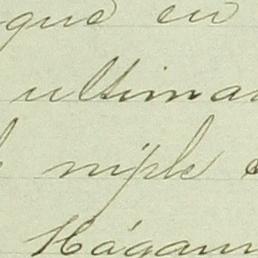 que en
ultima
niple
Hágan